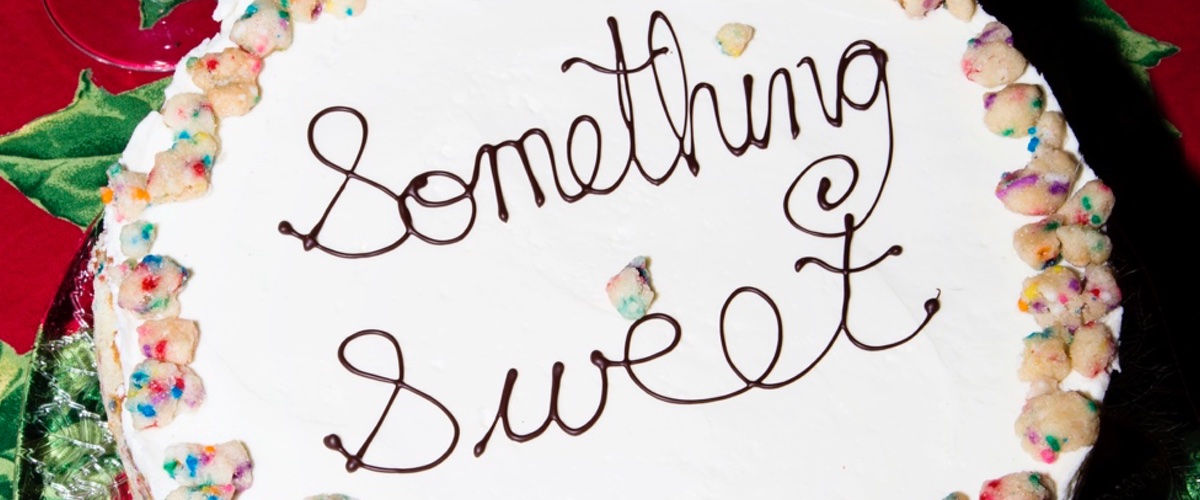 Something
Sweet